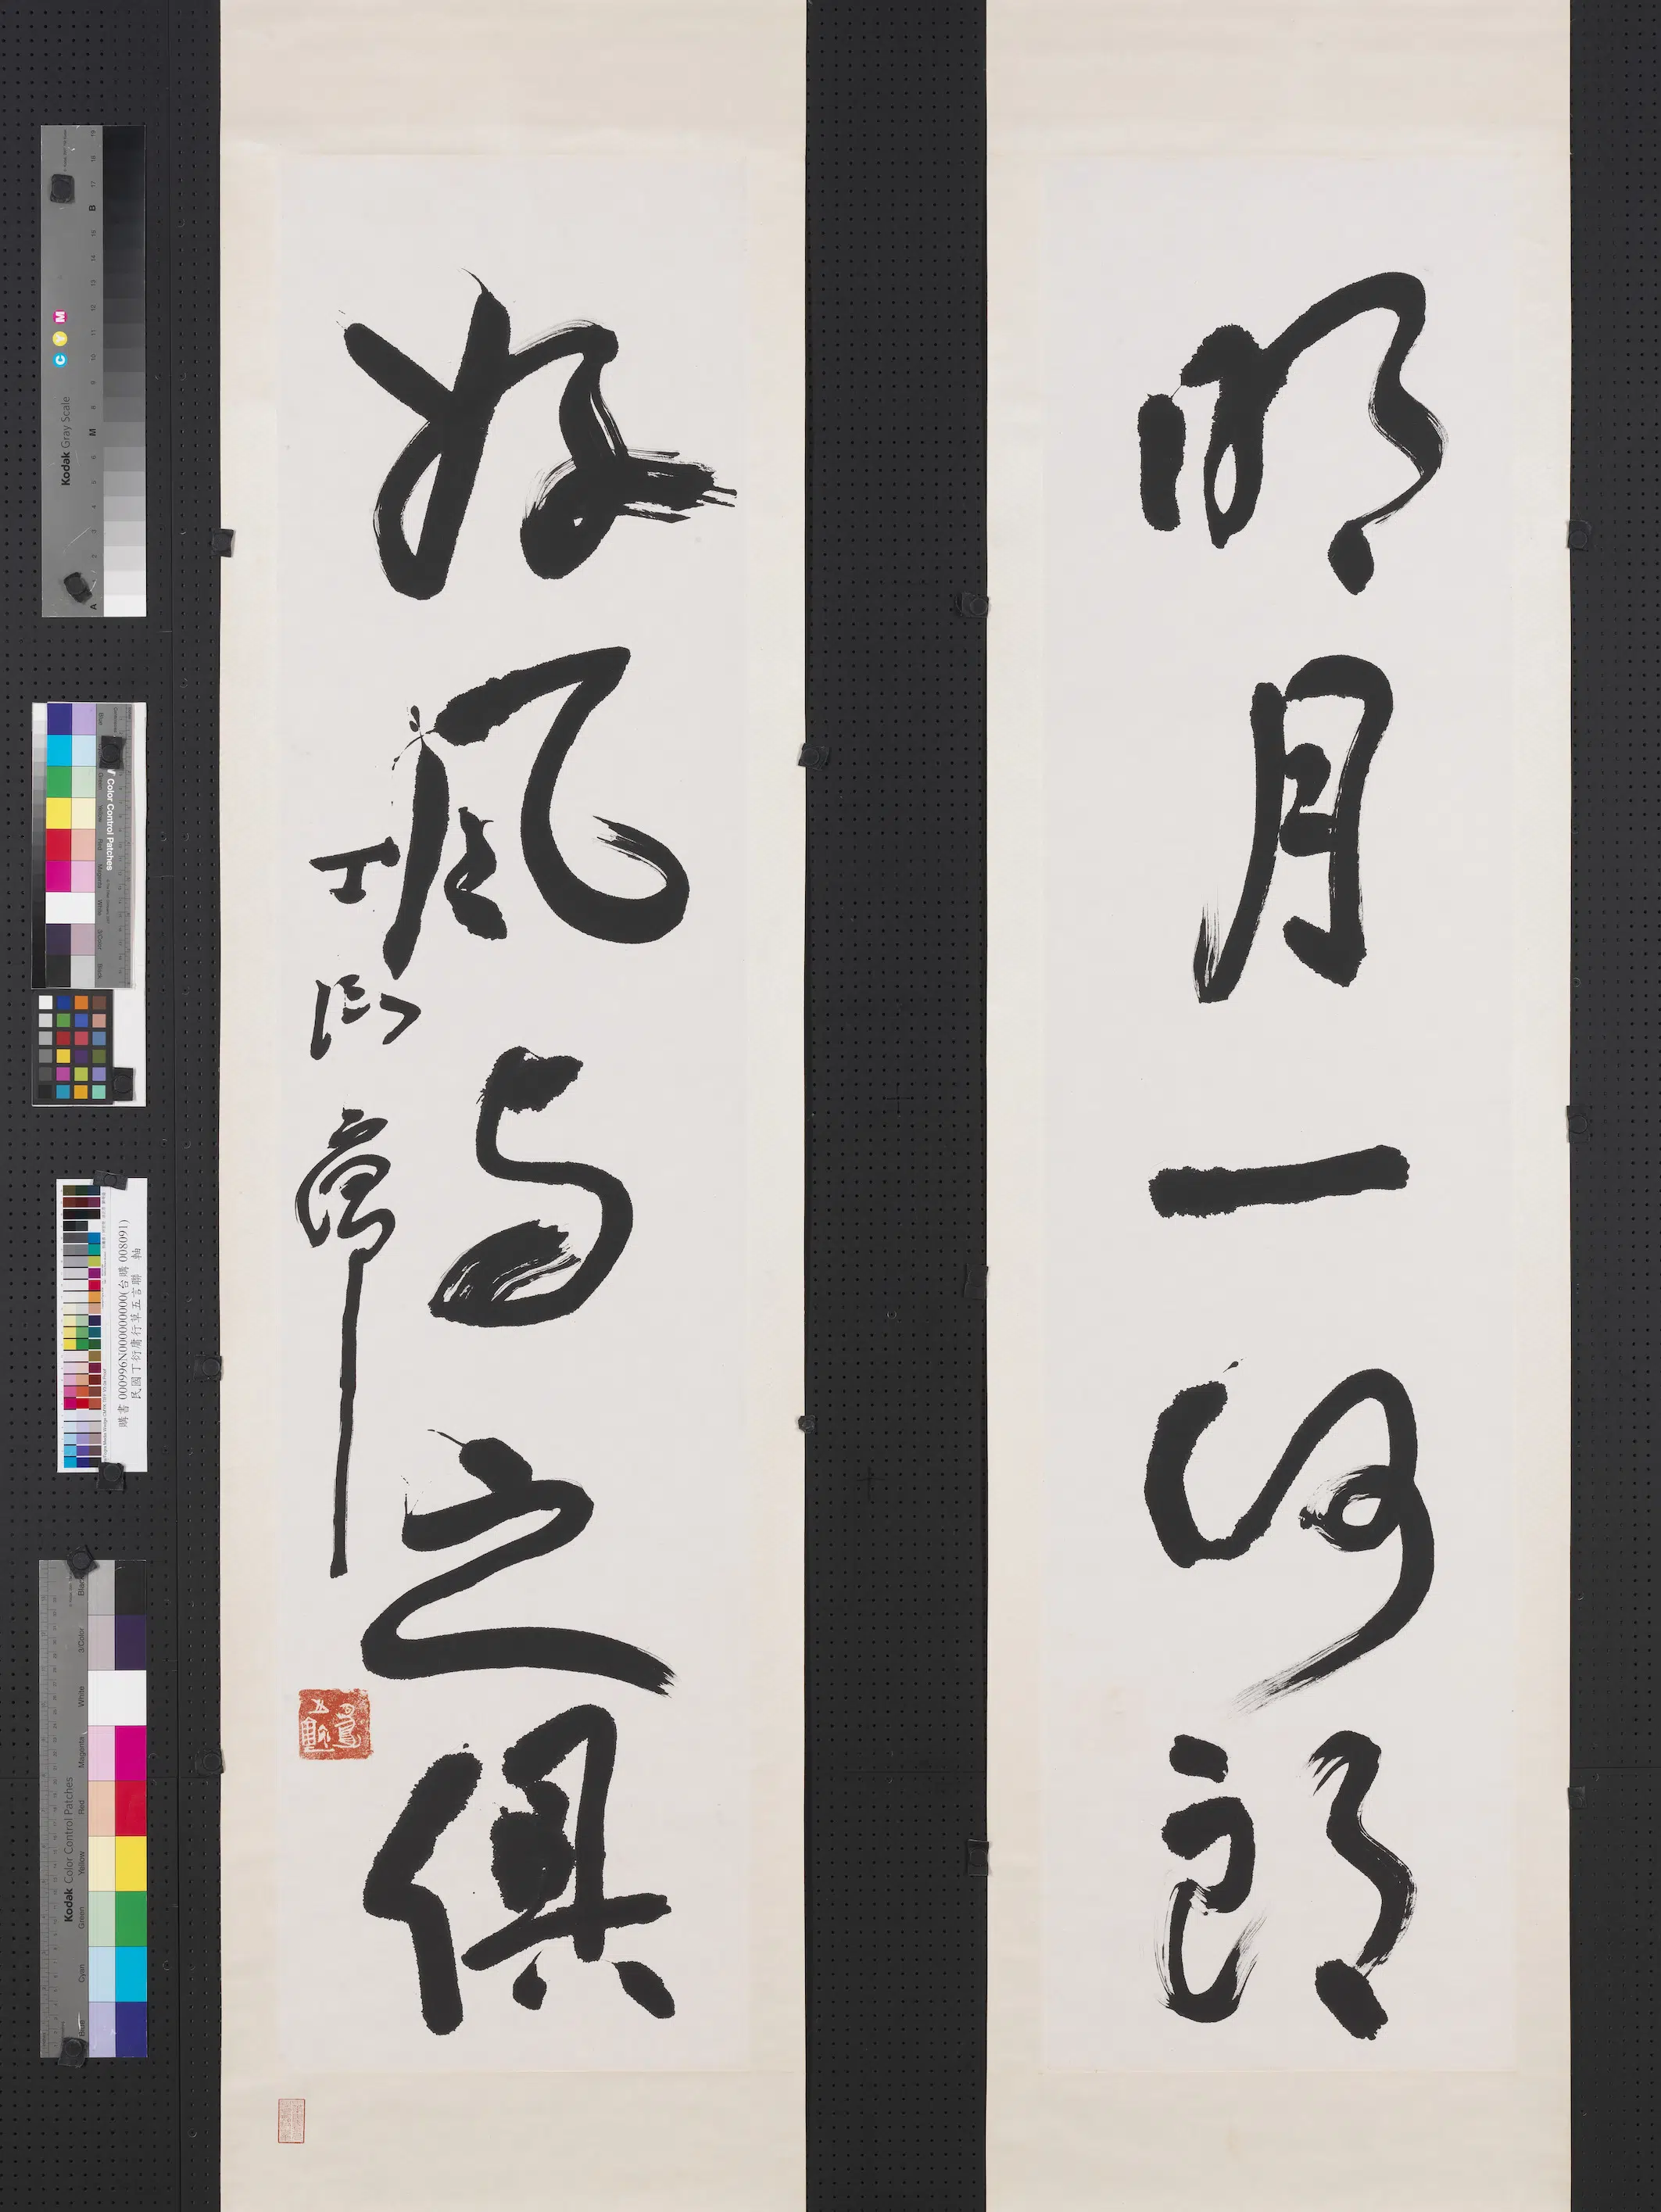 明月一何朗
好風与之俱
丁衍庸
購書 000996N000000000(台購 008091)
民國丁衍庸行草五言聯 軸
Kodak Gray Scale
C Y M
A 2 3 4 5 6 M 8 9 10 11 12 13 14 15 B 17 18 19
Color Control Patches
Blue Cyan Green Yellow Red Magenta White 3/Color Black
Kodak Color Control Patches
Blue Cyan Green Yellow Red Magenta White 3/Color Black